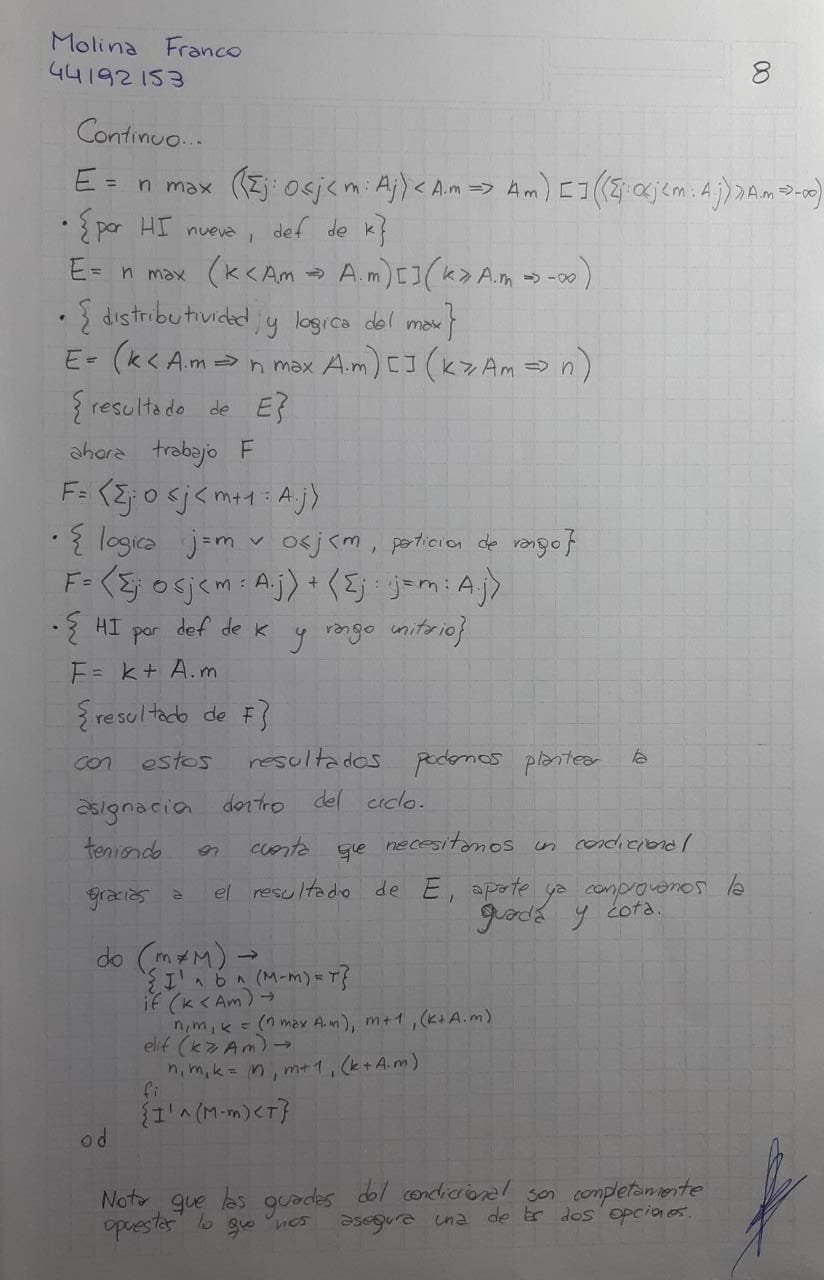 Molina Franco
44192153
8
Continuo...
E = n max (⟨Σj: 0≤j<m : Aj⟩ < A.m => Am) [] (⟨Σj: 0≤j<m : A.j⟩ ≥ A.m => -∞)
• {por HI nueva, def de k}
E = n max (k < A.m => A.m) [] (k ≥ A.m => -∞)
• { distributividad, y logica del max}
E = (k < A.m => n max A.m) [] (k ≥ Am => n)
{resultado de E}
ahora trabajo F
F = ⟨Σj: 0 ≤j< m+1 : A.j⟩
• { logica j=m v 0≤j<m, particion de rango}
F = ⟨Σj: 0 ≤j<m : A.j⟩ + ⟨Σj : j=m : A.j⟩
• { HI por def de k y rango unitario}
F = k + A.m
{resultado de F}
con estos resultados podemos plantear la
asignacion dentro del ciclo.
teniendo en cuenta que necesitamos un condicional
gracias a el resultado de E, aparte ya comprovamos la
guarda y cota.
do (m≠M) →
{I' ∧ b ∧ (M-m) = T}
if (k < Am) →
n, m, k = (n max A.m), m+1, (k+A.m)
elif (k ≥ Am) →
n, m, k = n, m+1, (k+A.m)
fi
{I' ∧ (M-m) < T}
od
Notar que las guardas del condicional son completamente
opuestas lo que nos asegura una de las dos opciones.